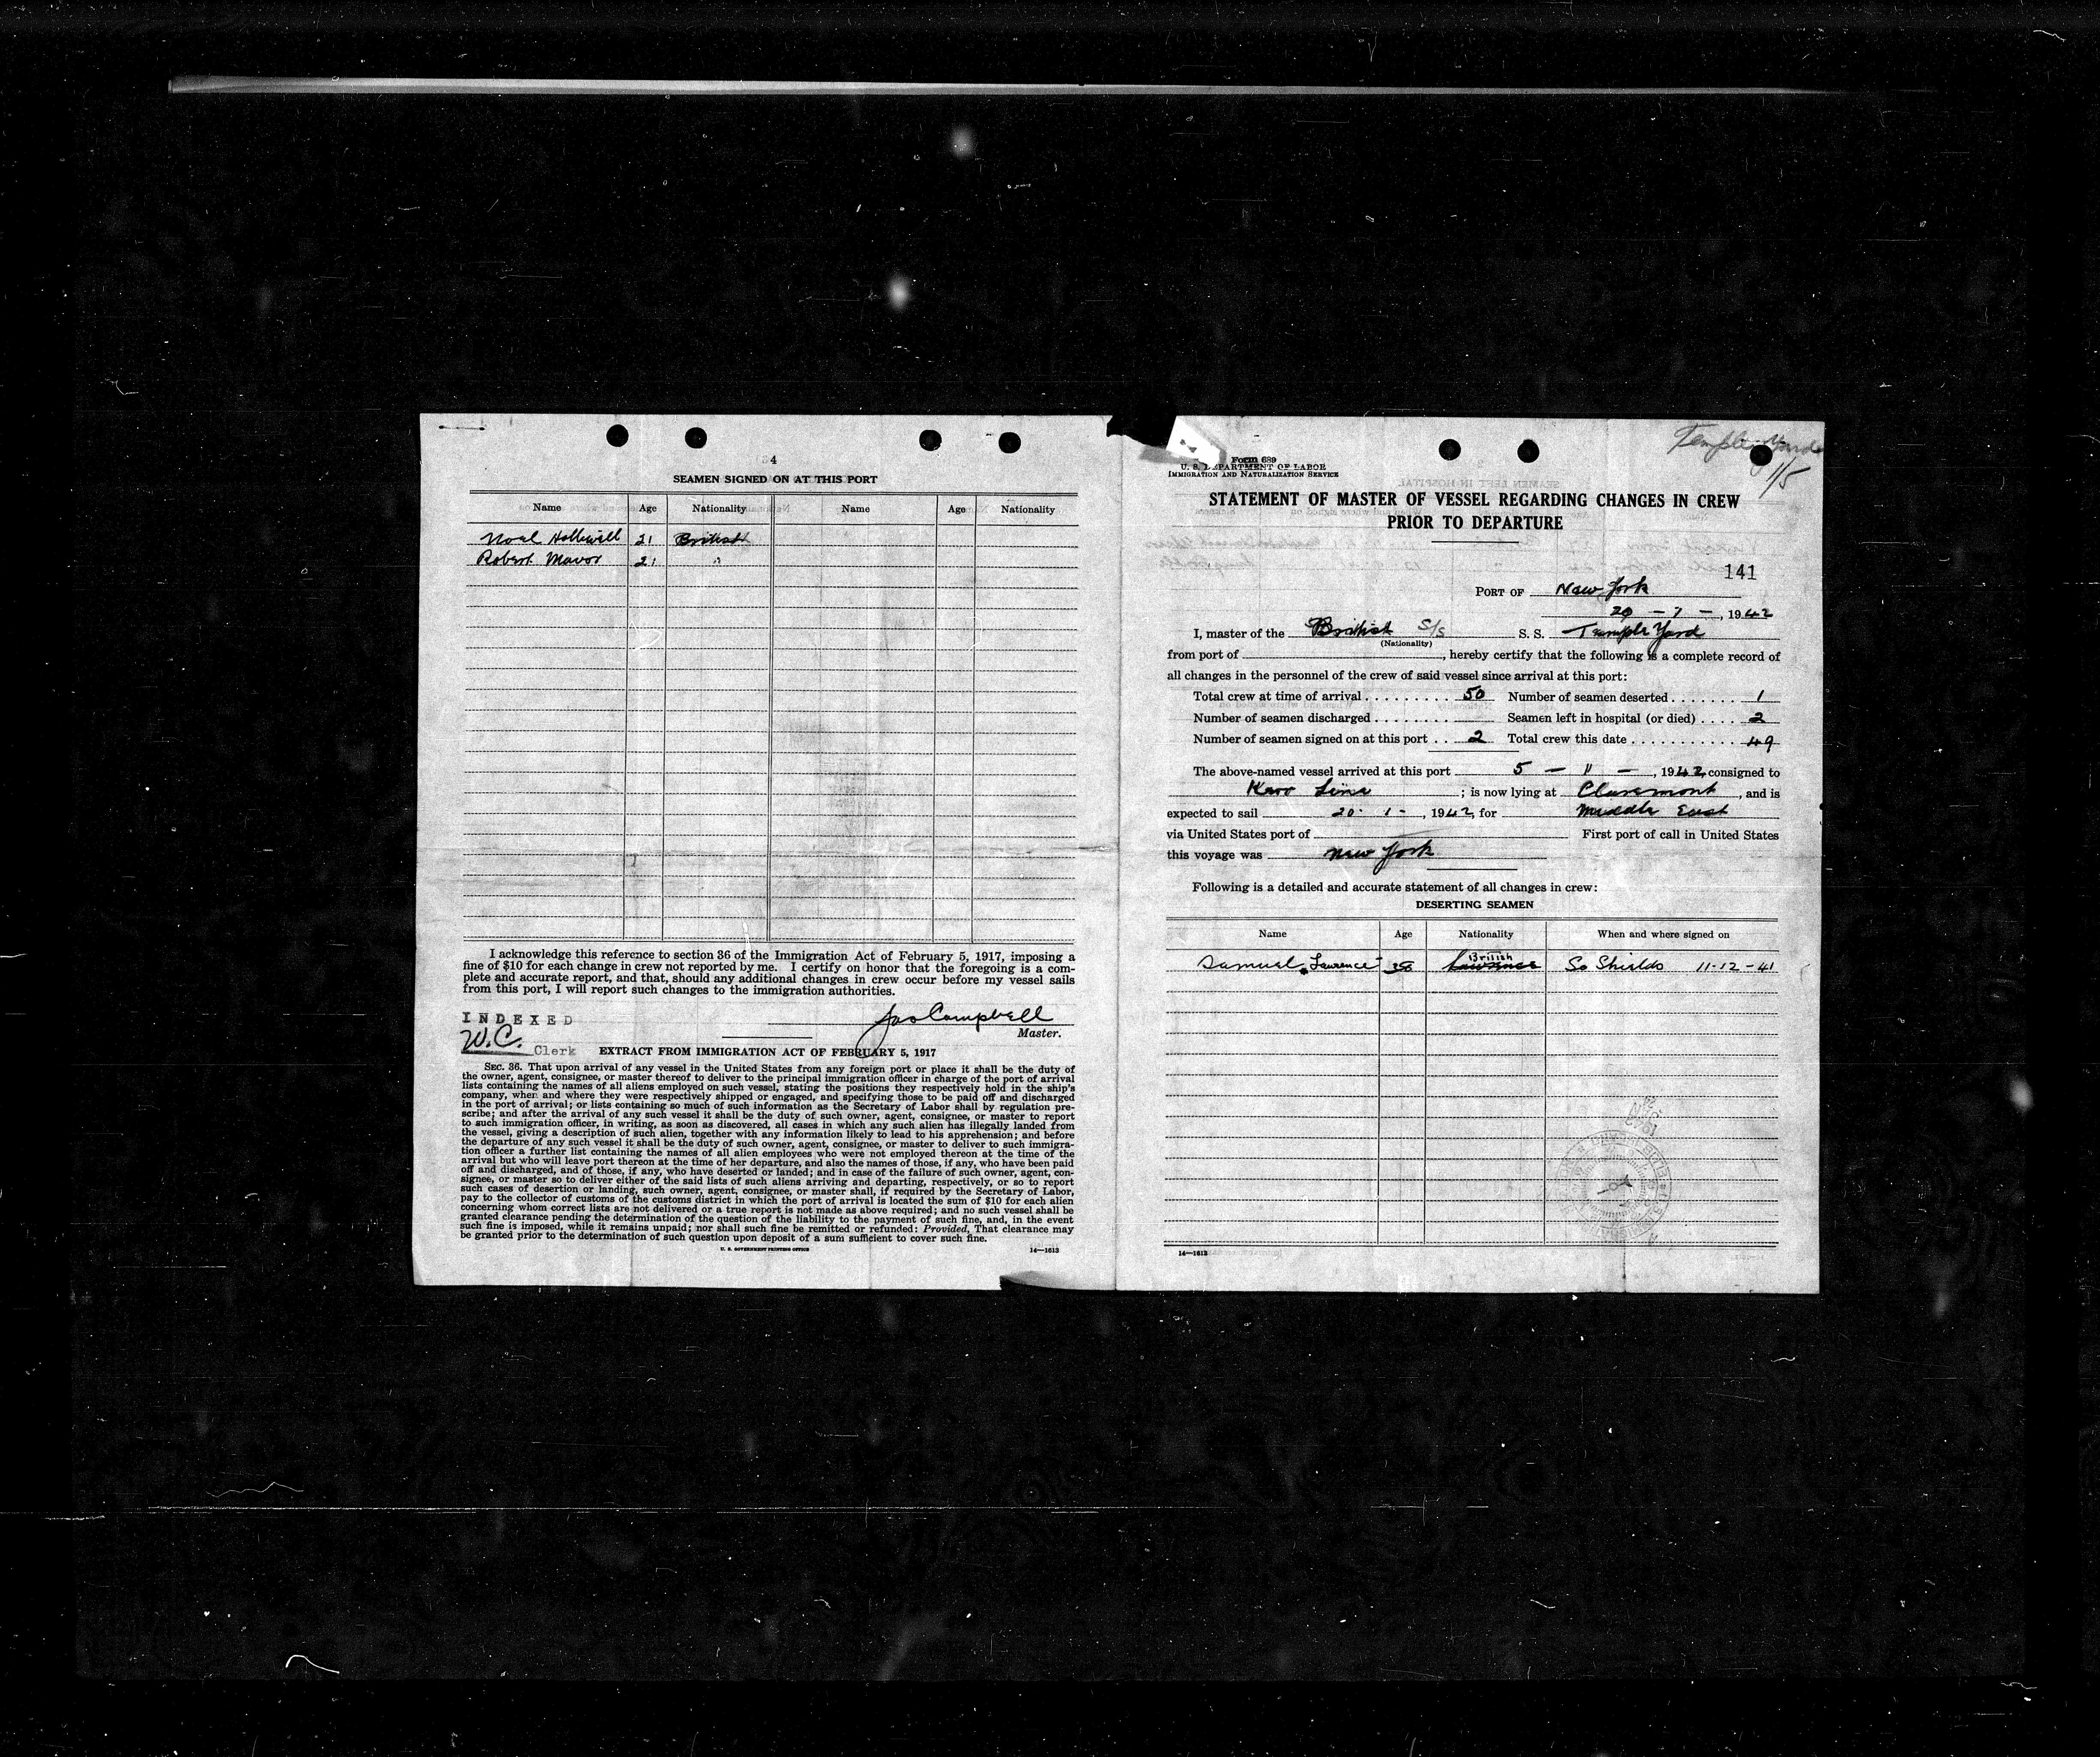 4
SEAMEN SIGNED ON AT THIS PORT
Name Age Nationality Name Age Nationality
Noel Holliwell 21 British
Robert Mavor 21 "
I acknowledge this reference to section 36 of the Immigration Act of February 5, 1917, imposing a
fine of $10 for each change in crew not reported by me. I certify on honor that the foregoing is a com-
plete and accurate report, and that, should any additional changes in crew occur before my vessel sails
from this port, I will report such changes to the immigration authorities.
INDEXED
Jas Campbell
Master.
W.C. Clerk
EXTRACT FROM IMMIGRATION ACT OF FEBRUARY 5, 1917
SEC. 36. That upon arrival of any vessel in the United States from any foreign port or place it shall be the duty of
the owner, agent, consignee, or master thereof to deliver to the principal immigration officer in charge of the port of arrival
lists containing the names of all aliens employed on such vessel, stating the positions they respectively hold in the ship's
company, when and where they were respectively shipped or engaged, and specifying those to be paid off and discharged
in the port of arrival; or lists containing so much of such information as the Secretary of Labor shall by regulation pre-
scribe; and after the arrival of any such vessel it shall be the duty of such owner, agent, consignee, or master to report
to such immigration officer, in writing, as soon as discovered, all cases in which any such alien has illegally landed from
the vessel, giving a description of such alien, together with any information likely to lead to his apprehension; and before
the departure of any such vessel it shall be the duty of such owner, agent, consignee, or master to deliver to such immigra-
tion officer a further list containing the names of all alien employees who were not employed thereon at the time of the
arrival but who will leave port thereon at the time of her departure, and also the names of those, if any, who have been paid
off and discharged, and of those, if any, who have deserted or landed; and in case of the failure of such owner, agent, con-
signee, or master so to deliver either of the said lists of such aliens arriving and departing, respectively, or so to report
such cases of desertion or landing, such owner, agent, consignee, or master shall, if required by the Secretary of Labor,
pay to the collector of customs of the customs district in which the port of arrival is located the sum of $10 for each alien
concerning whom correct lists are not delivered or a true report is not made as above required; and no such vessel shall be
granted clearance pending the determination of the question of the liability to the payment of such fine, and, in the event
such fine is imposed, while it remains unpaid; nor shall such fine be remitted or refunded: Provided, That clearance may
be granted prior to the determination of such question upon deposit of a sum sufficient to cover such fine.
U. S. GOVERNMENT PRINTING OFFICE 14—1613
Temple Yard
1/5
Form 689
U. S. DEPARTMENT OF LABOR
IMMIGRATION AND NATURALIZATION SERVICE
STATEMENT OF MASTER OF VESSEL REGARDING CHANGES IN CREW
PRIOR TO DEPARTURE
141
PORT OF New York
20 - 1 - , 1942
I, master of the British S/S S. S. Temple Yard
(Nationality)
from port of , hereby certify that the following is a complete record of
all changes in the personnel of the crew of said vessel since arrival at this port:
Total crew at time of arrival 50 Number of seamen deserted 1
Number of seamen discharged Seamen left in hospital (or died) 2
Number of seamen signed on at this port 2 Total crew this date 49
The above-named vessel arrived at this port 5 - 1 - , 1942, consigned to
Kerr Line ; is now lying at Claremont , and is
expected to sail 20 - 1 - , 1942, for Middle East
via United States port of First port of call in United States
this voyage was New York
Following is a detailed and accurate statement of all changes in crew:
DESERTING SEAMEN
Name Age Nationality When and where signed on
Samuel Lawrence British So Shields 11-12-41
14—1613